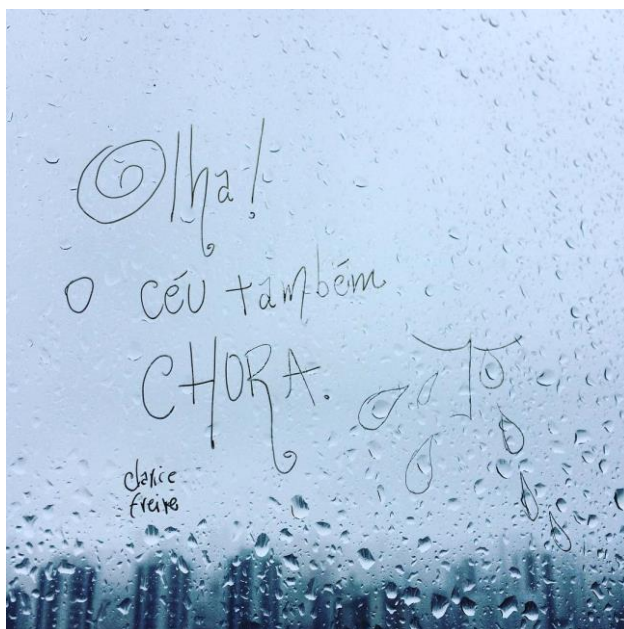 Olha!
O céu também
CHORA.
clarice
freire